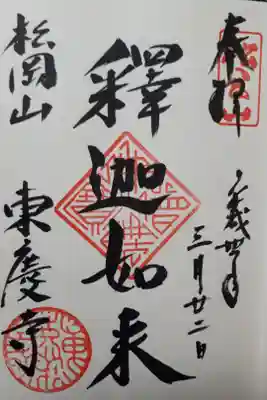 奉拝
三月廿二日
釋迦如来
松岡山
東慶寺